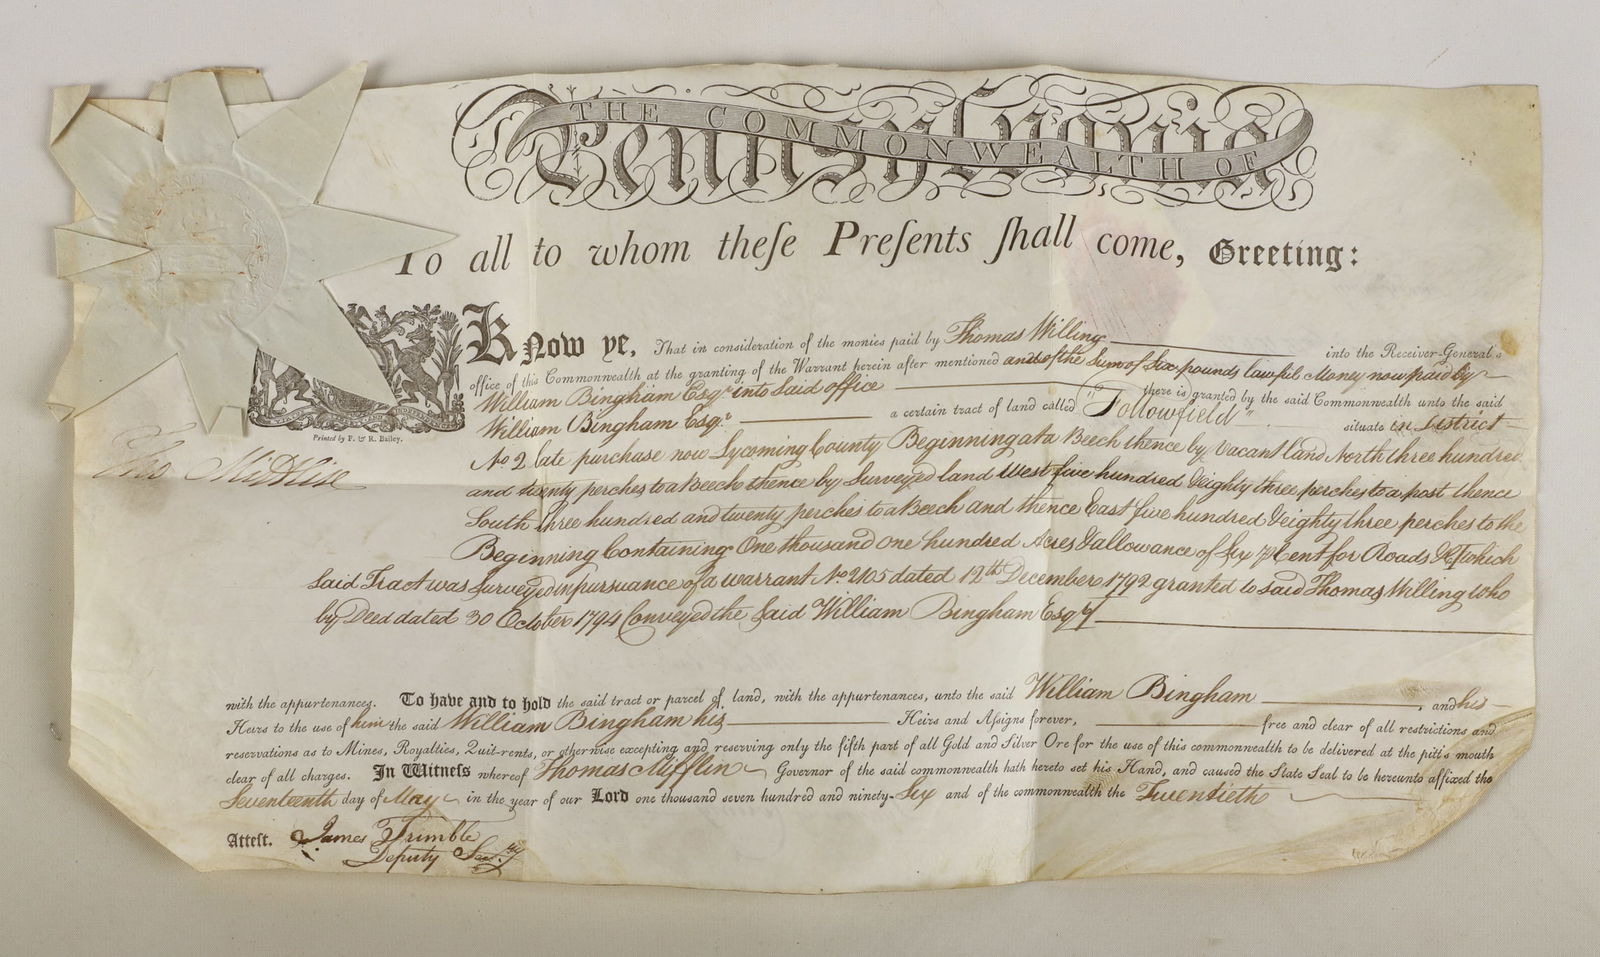 THE COMMONWEALTH OF
Pennsylvania
To all to whom theſe Preſents ſhall come, Greeting:
Know ye, That in consideration of the monies paid by Thomas Willing into the Receiver-General's
office of this Commonwealth at the granting of the Warrant herein after mentioned and of the Sum of Six pounds lawful Money now paid by
William Bingham Esqr. into Said office there is granted by the said Commonwealth unto the said
William Bingham Esqr. a certain tract of land called "Followfield" situate in District
No 2 late purchase now Lycoming County Beginning at a Beech thence by Vacant land North three hundred
and twenty perches to a Beech thence by Surveyed land West five hundred & eighty three perches to a post thence
South three hundred and twenty perches to a Beech and thence East five hundred & eighty three perches to the
Beginning Containing One thousand one hundred Acres & allowance of Six ⅌ Cent for Roads &c Which
Said Tract was Surveyed in pursuance of a warrant No 2105 dated 12th December 1792 granted to said Thomas Willing who
by Deed dated 30 October 1794 Conveyed the Said William Bingham Esqr
with the appurtenances. To have and to hold the said tract or parcel of land, with the appurtenances, unto the said William Bingham, and his
Heirs to the use of him the said William Bingham his Heirs and Aſsigns forever, free and clear of all restrictions and
reservations as to Mines, Royalties, Quit-rents, or otherwise excepting and reserving only the fifth part of all Gold and Silver Ore for the use of this commonwealth to be delivered at the pit's mouth
clear of all charges. In Witneſs whereof Thomas Mifflin Governor of the said commonwealth hath hereto set his Hand, and caused the State Seal to be hereunto affixed the
Seventeenth day of May in the year of our Lord one thousand seven hundred and ninety-Six and of the commonwealth the Twentieth
Printed by F. & R. Bailey.
Tho Mifflin
Atteſt. James Trimble
Deputy Secy